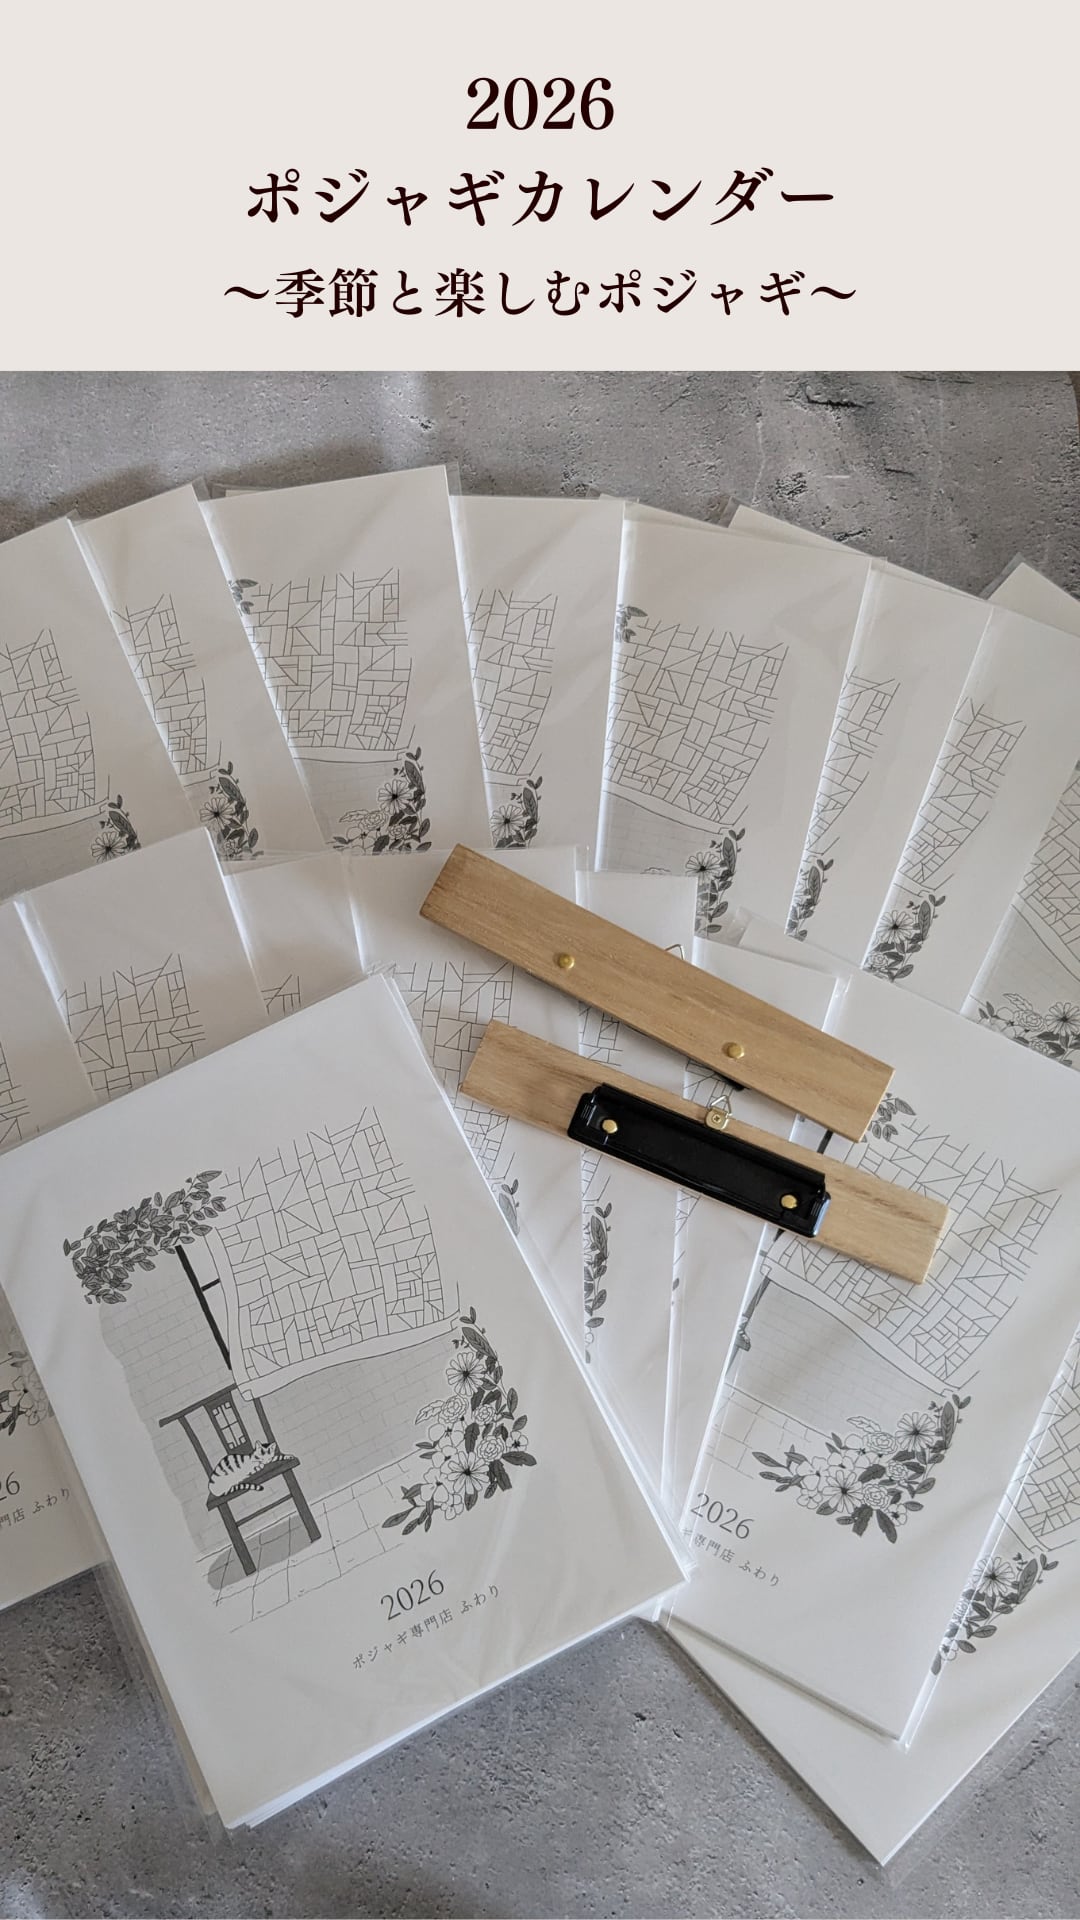 2026
ポジャギカレンダー
〜季節と楽しむポジャギ〜
2026
ポジャギ専門店 ふわり
2026
ギ専門店 ふわり
26
門店 ふわり